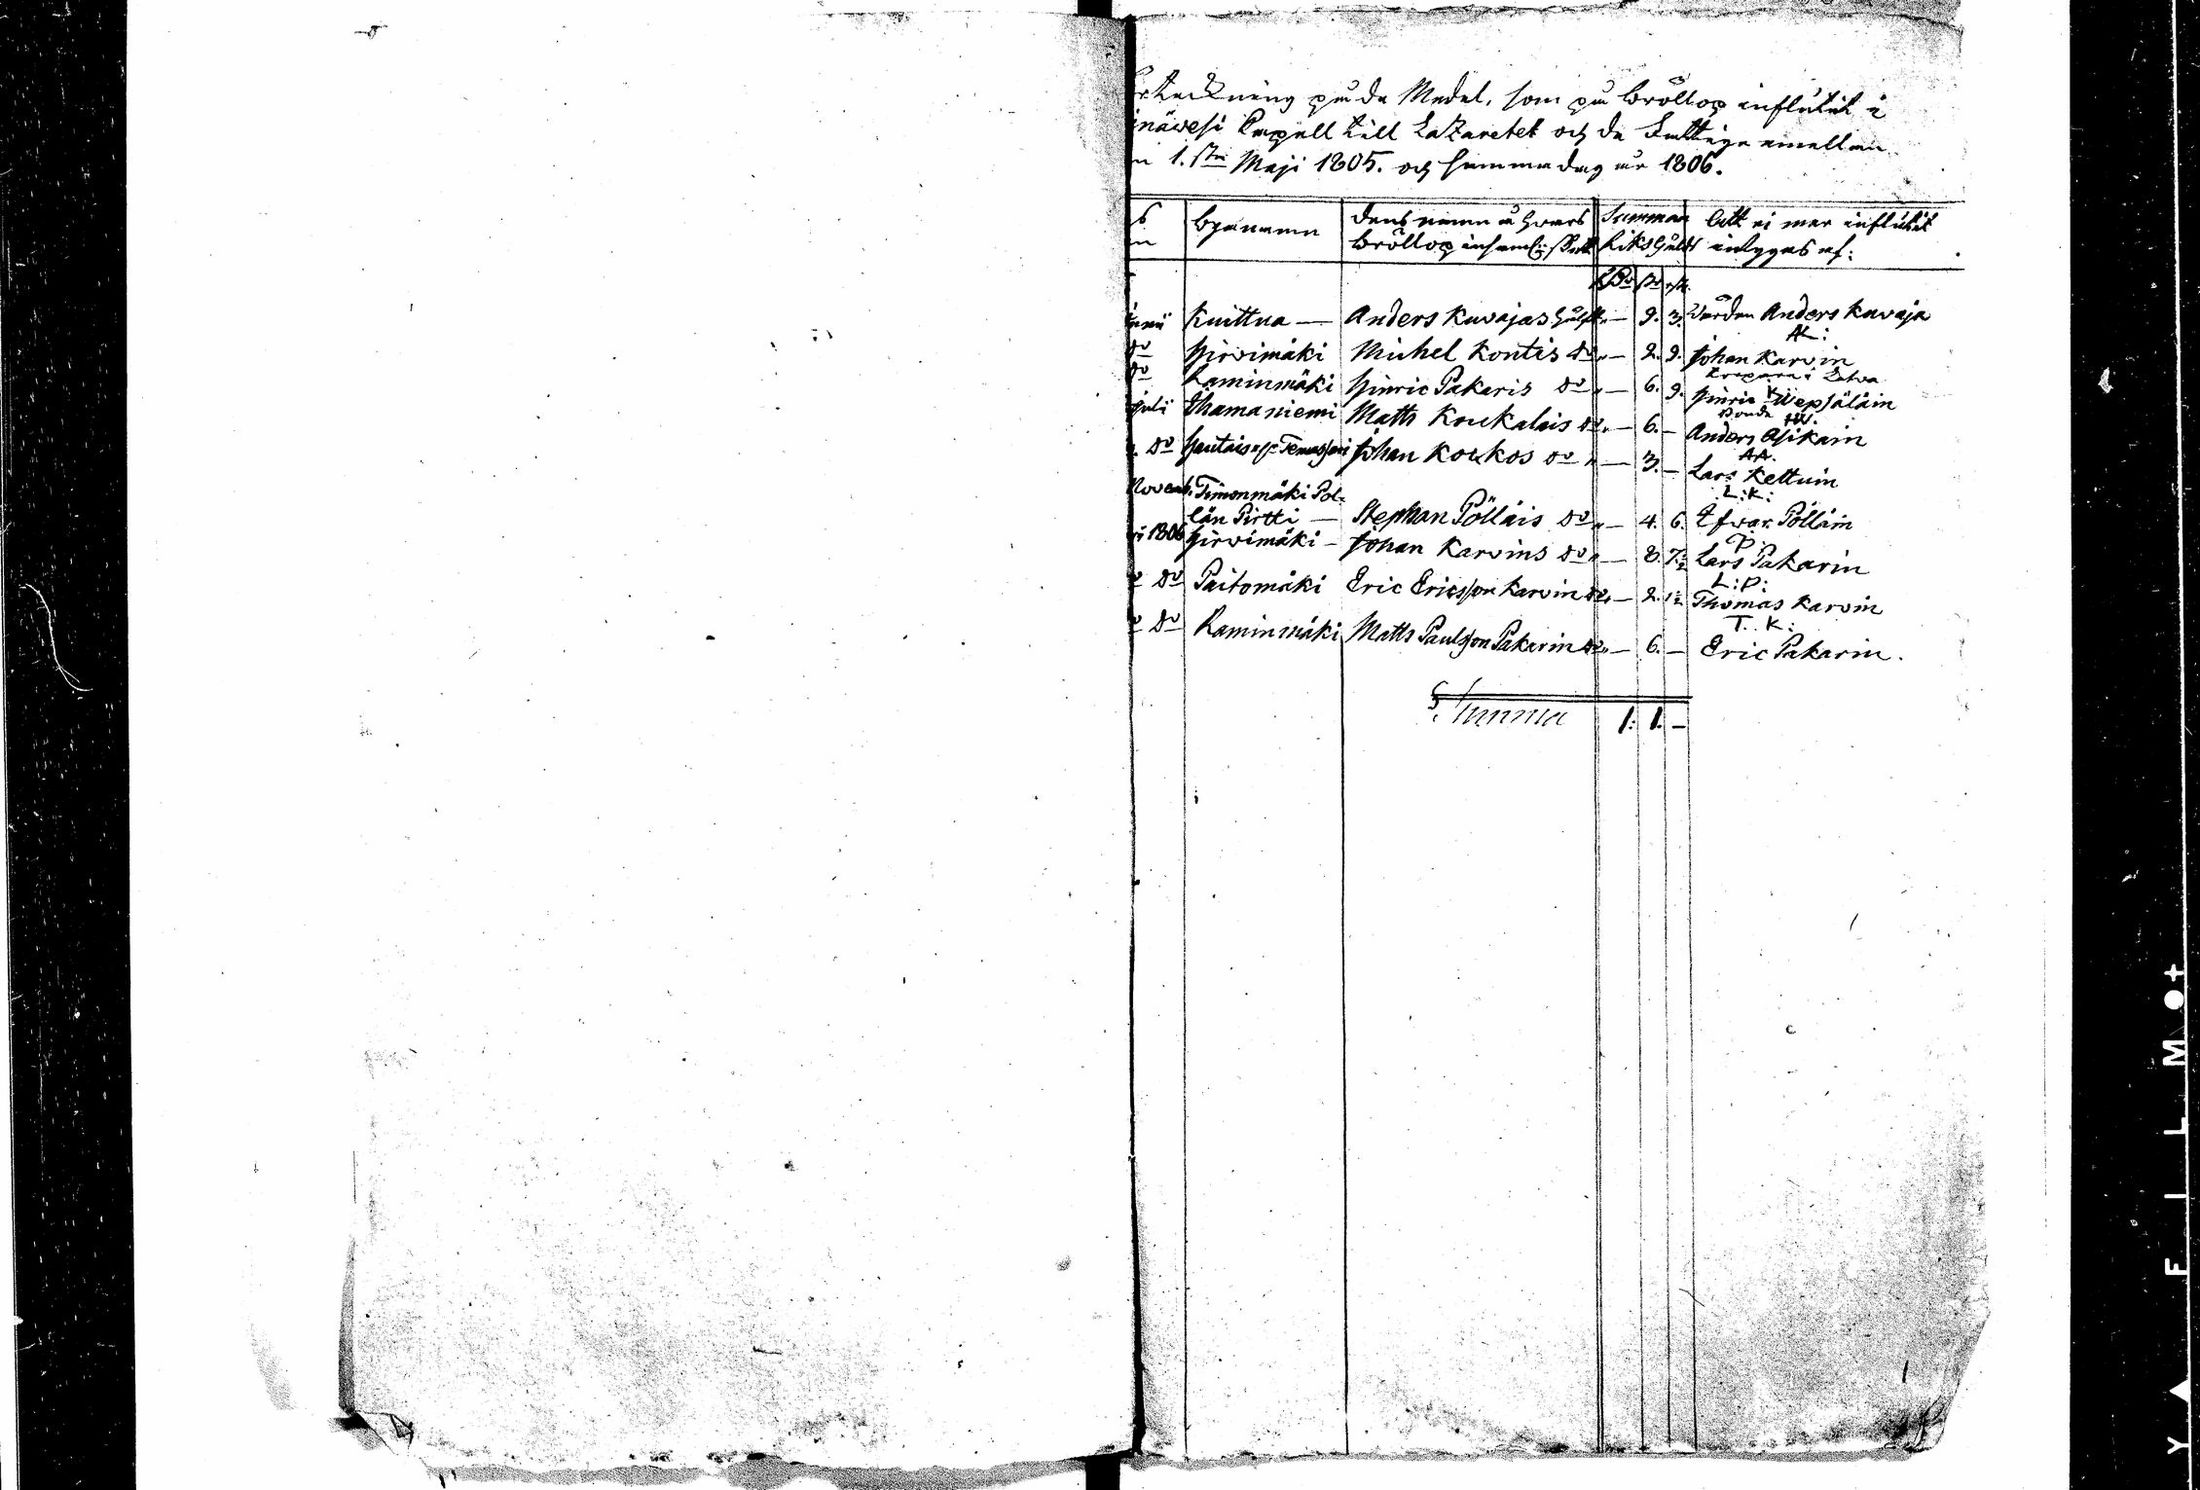 teckning på de Medel, som på bröllop influtit i
inäwesi Capell till Lazaretet och de Fattige emellan
n 1.sta Maji 1805. och samma dag år 1806.
Bynamn
Dens namn å hvars
bröllop insamling skedt
Summan
Riksgäldt
Att ei mer influtit
intygas af:
Kuittua — Anders Kuvajas — 9. 3. Värden Anders Kuvaja
AK:
Do Hirvimäki Michel Kontis Do — 2. 9. Johan Karvin
Do Raminmäki Hinric Pakaris Do — 6. 9. Hinric Wepsäläin
Julii Ihamaniemi Matts Koukalais Do — 6. — Anders Asikain
AA.
Do Johan Koukos Do — 3. — Lars Kettuin
L: K:
Novemb. Timonmäki Pöl-
län Pirtti — Stephan Pölläis Do — 4. 6. Pölläin
P.
1806 Hirvimäki — Johan Karvins Do — 8. 7½ Lars Pakarin
L: P:
Do Paitomäki Eric Ericsson Karvin Do — 2. 1½ Thomas Karvin
T. K:
Do Raminmäki Matts Paulsson Pakarin Do — 6. — Eric Pakarin.
Summa 1. 1. —
FILM